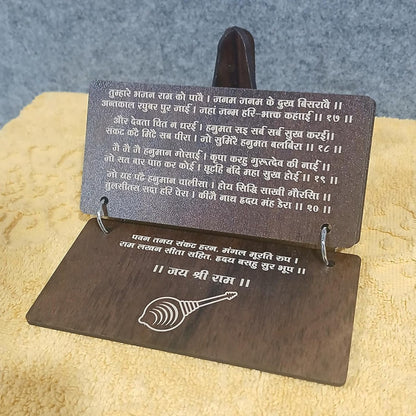 तुम्हारे भजन राम को पावै । जनम जनम के दुख बिसरावै ।।
अन्तकाल रघुबर पुर जाई । जहां जन्म हरि-भक्त कहाई ।। १७ ।।
और देवता चित न धरई । हनुमत सइ सर्व सर्व सुख करई।
संकट कटै मिटै सब पीरा । जो सुमिरै हनुमत बलबिरा ।। १८ ।।
जै जै जै हनुमान गोसाई । कृपा करहु गुरुदेव की नाई
जो सत बार पाठ कर कोई । छूटहि बंदि महा सुख होई ।। १९ ।।
जो यह पढै हनुमान चालीसा । होय सिद्धि साखी गौरीसा ।।
तुलसीदास सदा हरि चेरा । कीजै नाथ हृदय मंह डेरा ।। २० ।।
पवन तनय संकट हरन, मंगल मूरति रुप ।
राम लखन सीता सहित, हृदय बसहु सुर भूप ।।
।। जय श्री राम ।।